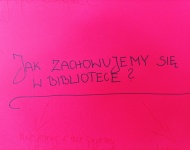 JAK ZACHOWUJEMY SIĘ
W BIBLIOTECE?